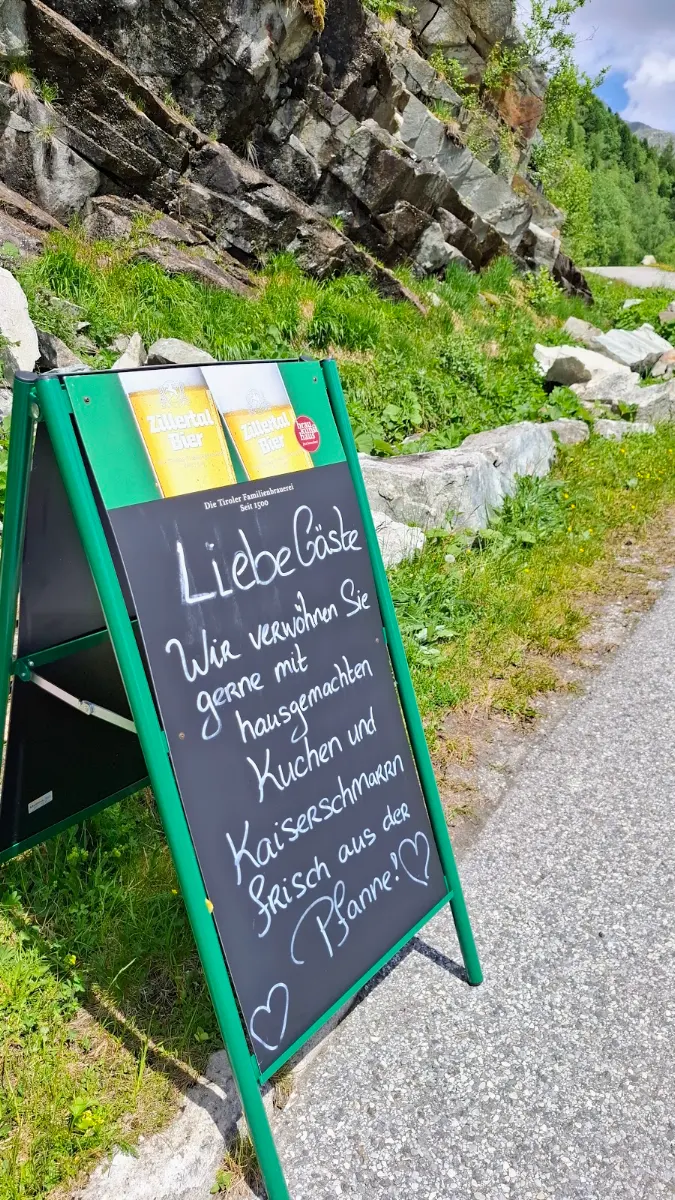 Zillertal
Bier
Zillertal
Bier
Die Tiroler Familienbrauerei
Seit 1500
Liebe Gäste
Wir verwöhnen Sie
gerne mit
hausgemachten
Kuchen und
Kaiserschmarrn
frisch aus der
Pfanne!